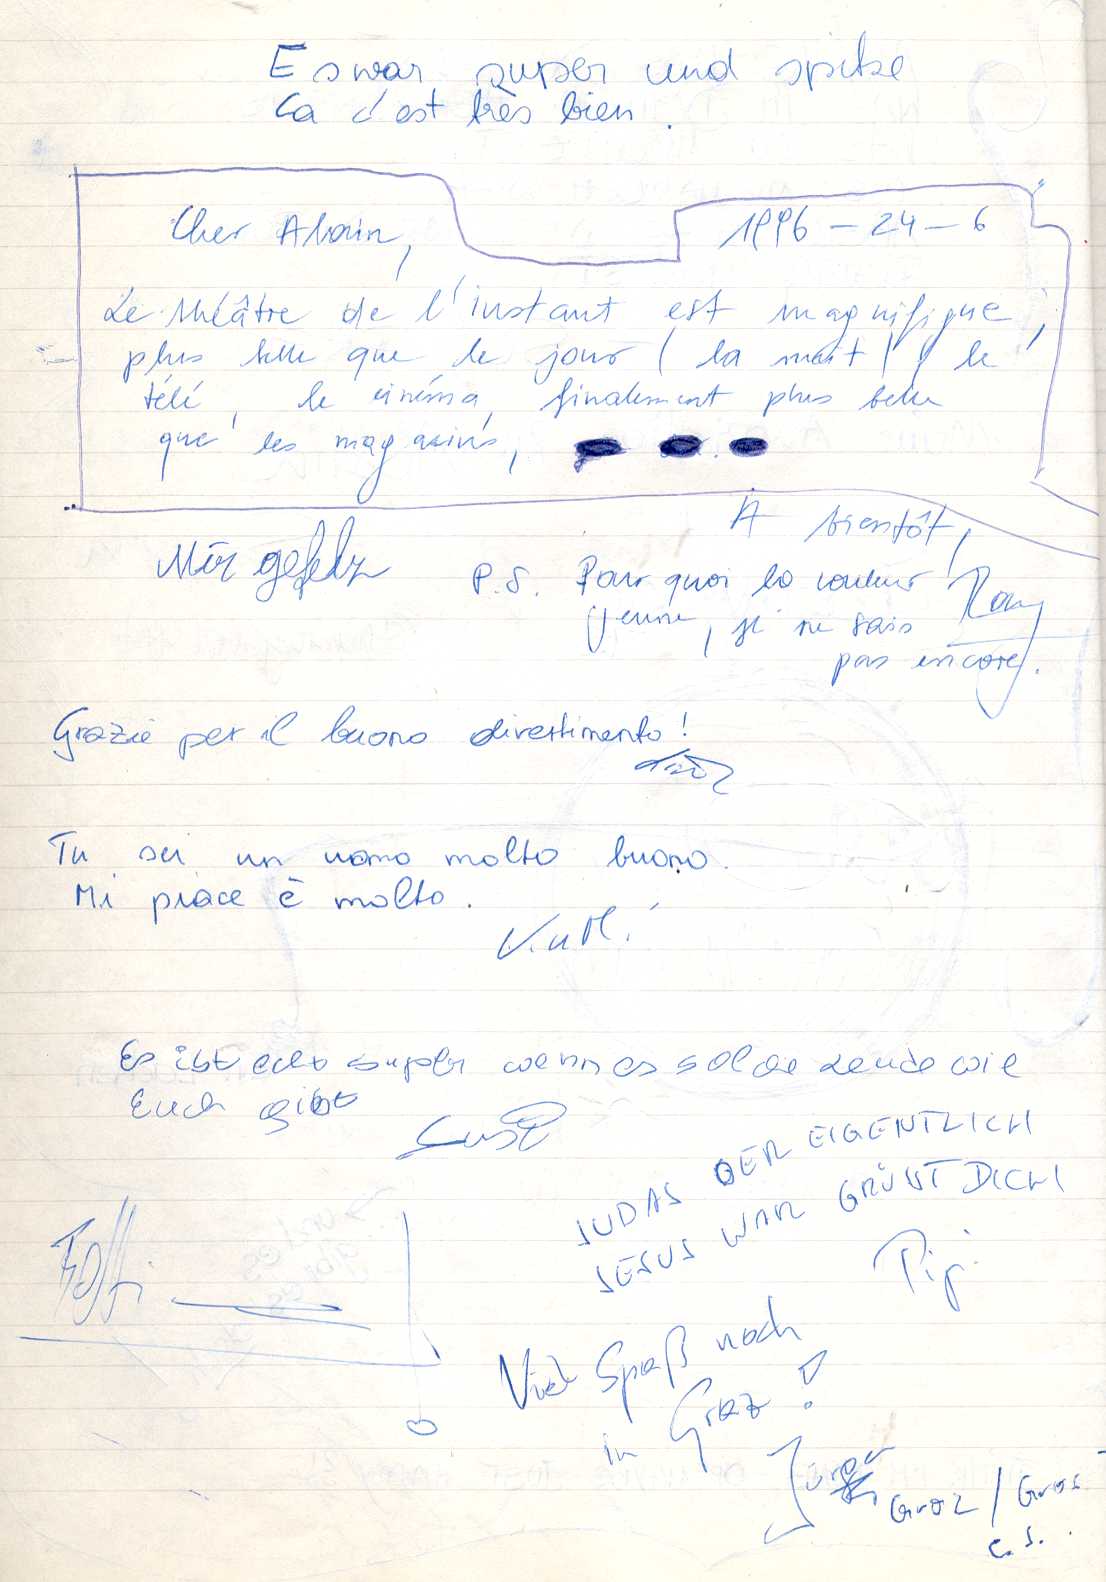 Es war super und spitze
Ca c'est très bien.
Cher Alain,
1996 - 24 - 6
Le théâtre de l'instant est magnifique,
plus belle que le jour (la nuit), le
télé, le cinéma, finalement plus belle
que les magasins,
A bientôt,
Mir gefehlz
P.S. Pourquoi la couleur
jeune, je ne sais
pas encore.
Grazie per il buono divertimento!
Tu sei un uomo molto buono.
Mi piace è molto.
Es ist echt super wenn es solche Leute wie
Euch gibt
JUDAS DER EIGENTLICH
JESUS WAR GRÜSST DICH
Pipi
Viel Spaß noch
in Graz!
Jürgen
Graz / Gras
e. s.